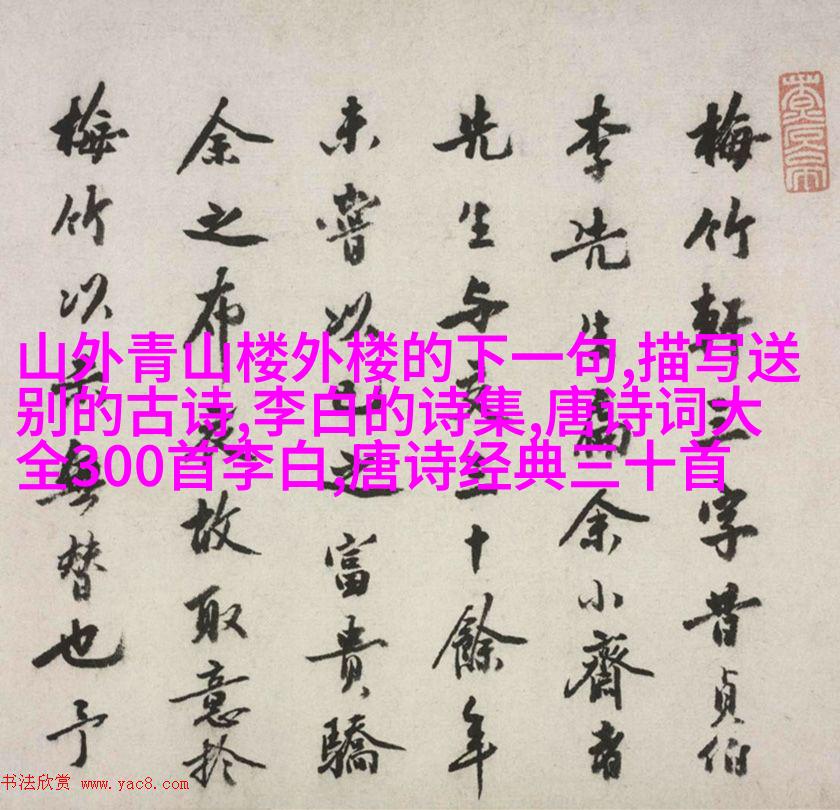 梅竹軒三字昔貞伯
李先生為余小齋書
先生与交三十餘年
未嘗以己之富貴驕
余之布衣故取意於
梅竹以示無替也予
山外青山楼外楼的下一句,描写送
别的古诗,李白的诗集,唐诗词大
全300首李白,唐诗经典三十首
书法欣赏 www.yac8.com